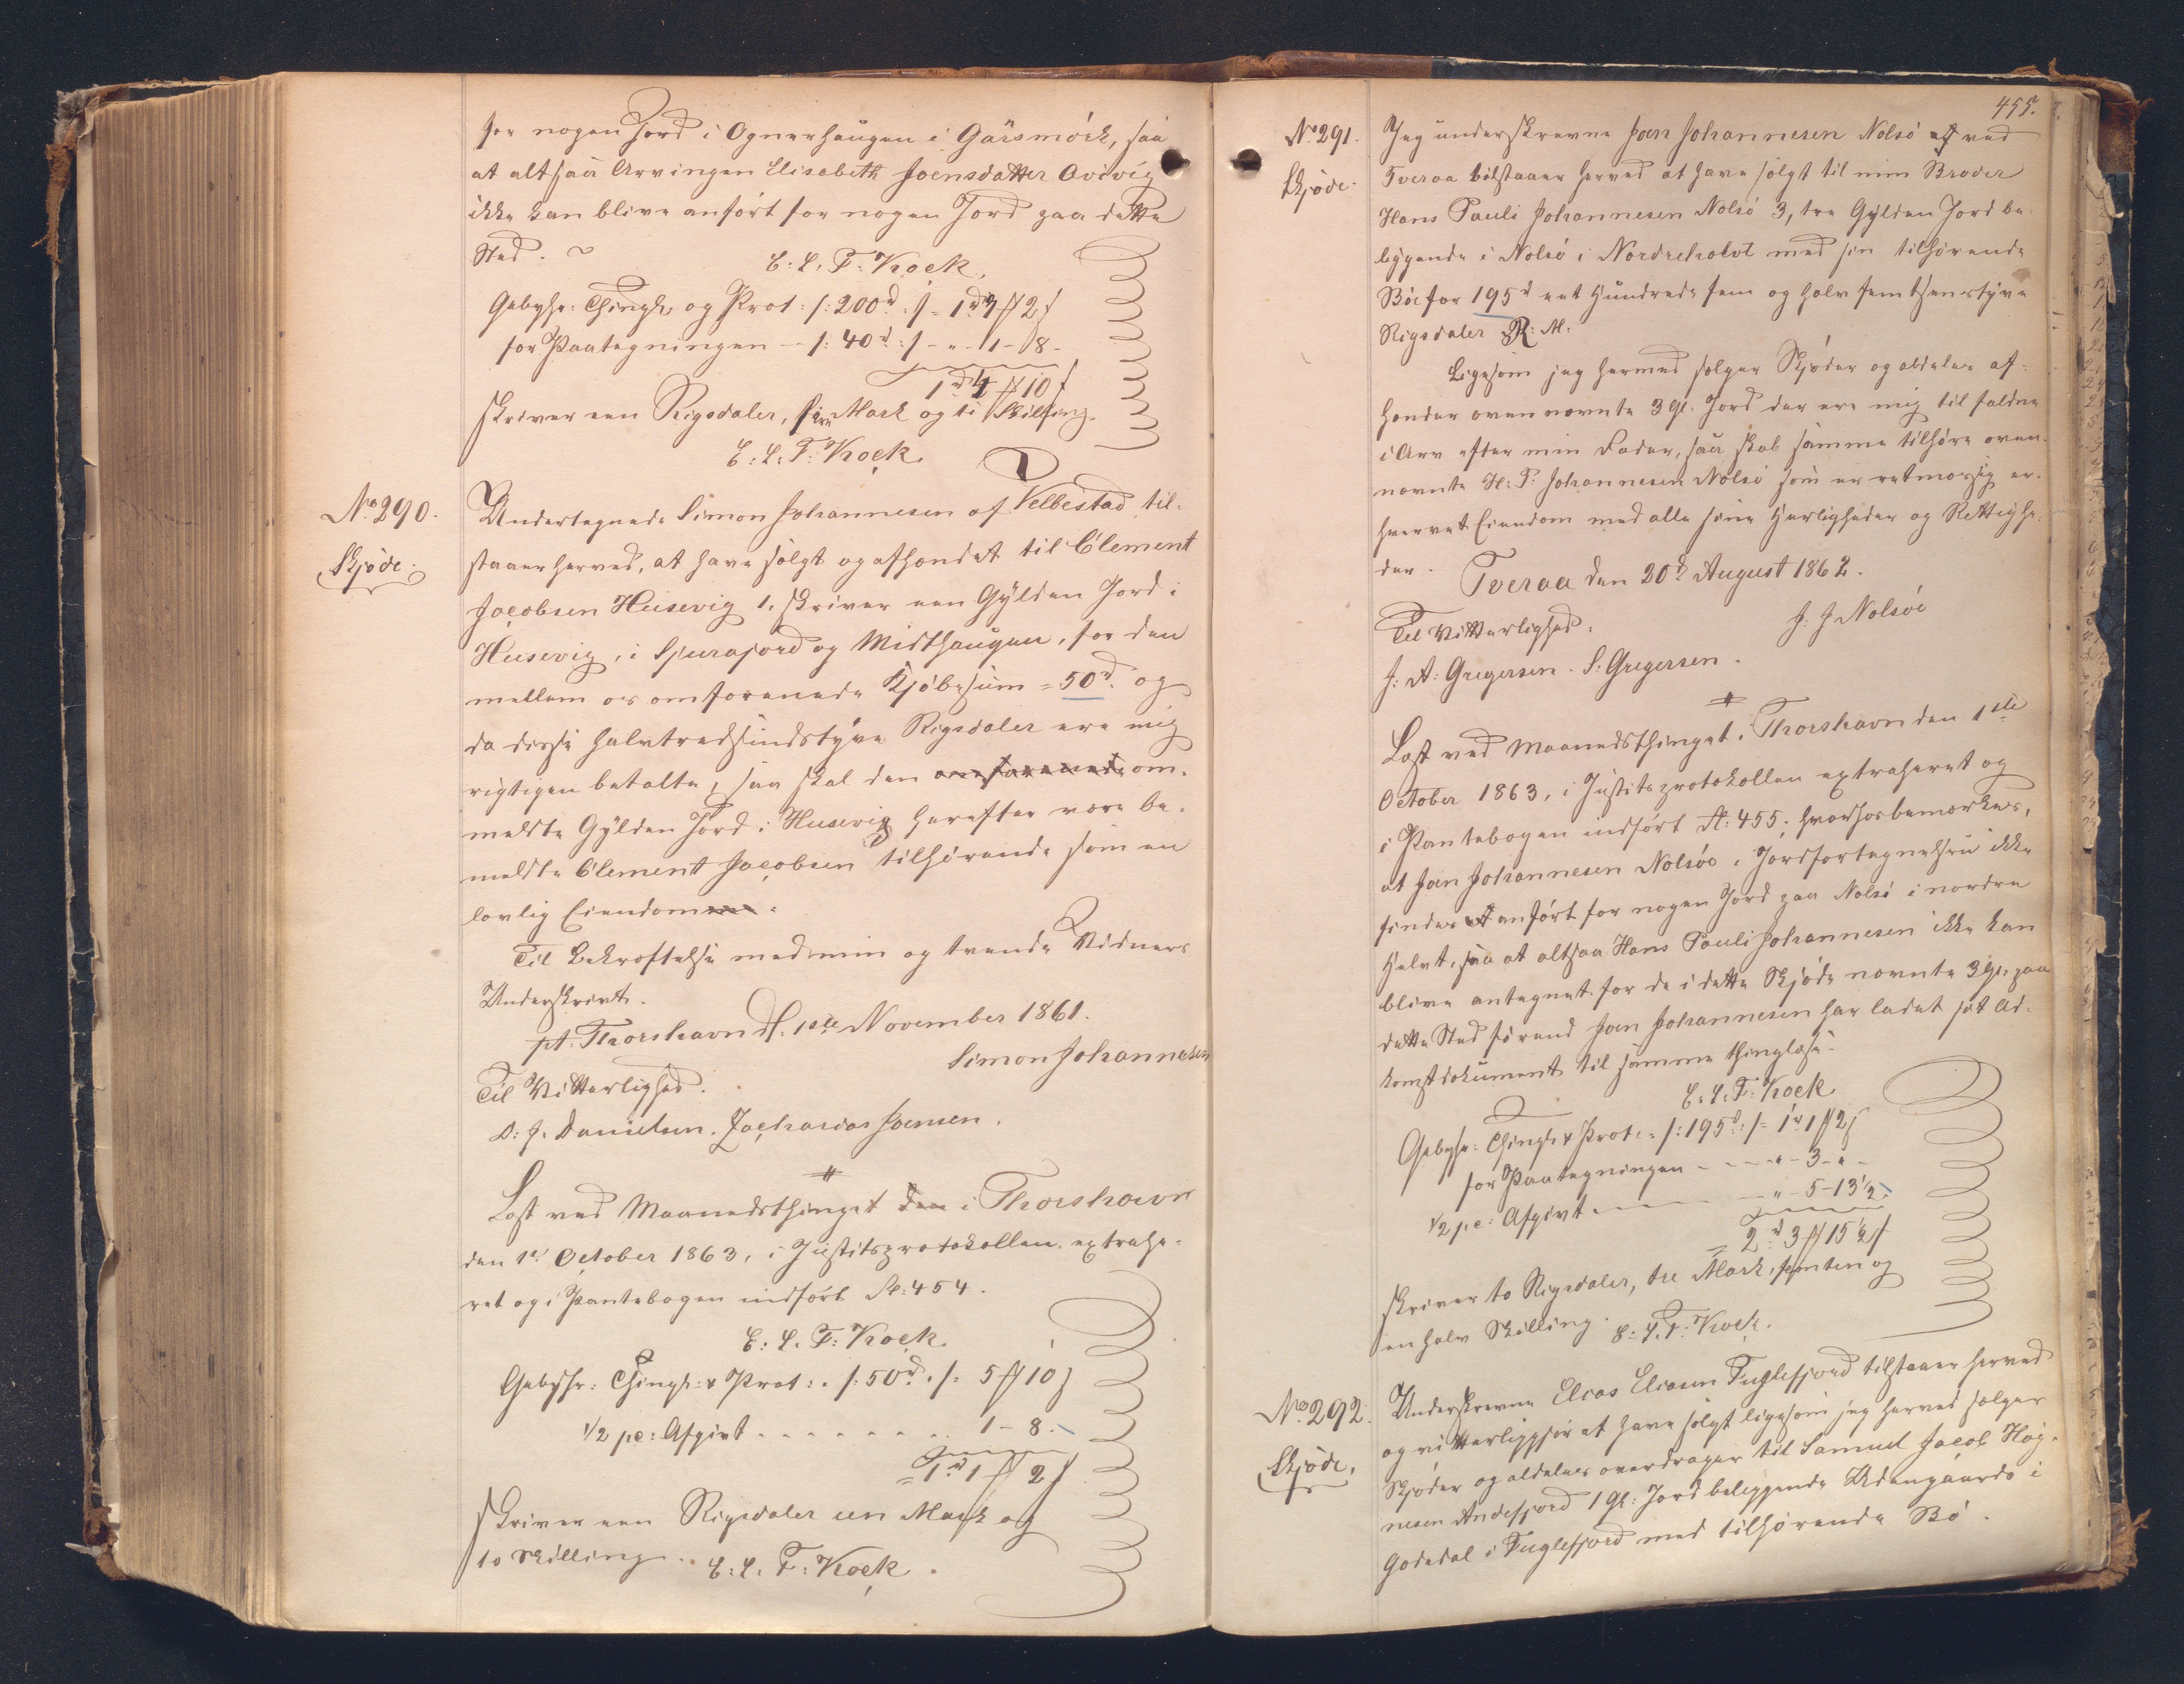 for nogen Jord i Ognerhaugen i Gaismórk, saa
at altsaa Arvingen Elisabeth Joensdatter Qvivig
ikke kan blive anført for nogen Jord paa dette
Sted. ~
E: L. F: Kock.
Gebyhr: Thingl: og Prot: /: 200d :/ = 1d 3 # 2 s
for Paategningen — /: 40d :/ - " - 1 - 8 -
1d 4 # 10 s
skriver een Rigsdaler, fire Mark og ti Skilling.
E: L. F: Kock.
No 290.
Skjøde.
Undertegnede Simon Johannesen af Velbestad til-
staaer herved, at have solgt og afhændet til Clement
Jacobsen Husevig 1, skriver een Gylden Jord i
Husevig, i Sjurajord og Midthaugen, for den
mellem os omforenede Kjöbesum = 50d. og
da disse halvtredsindstyve Rigsdaler ere mig
rigtigen betalte, saa skal den omforenede om-
meldte Gylden Jord i Husevig herefter være be-
meldte Clement Jacobsen tilhörende som en
lovlig Eiendom.
Til Bekræftelse med min og tvende Vidners
Underskrivt.
pt. Thorshavn d. 1ste November 1861.
Simon Johannesen
Til Vitterlighed.
D: J. Danielsen. Zacharias Joensen.
#
Læst ved Maanedsthinget den i Thorshavn
den 1st October 1863, i Justitsprotokollen extrahe-
ret og i Pantebogen indført Fl: 454.
E: L. F: Kock.
Gebyhr: Thingl: & Prot: . /: 50d. /: 5 # 10 s
1/2 pc: Afgivt - - - - - - - - 1 - 8. -
= 1d 1 # 2 s
skriver een Rigsdaler een Mark og
to Skilling. E: L. F: Kock.
455.
No 291.
Skjøde.
Jeg underskrevne Joen Johannesen Nolsö af ved
Tveraa tilstaaer herved at have solgt til min Broder
Hans Pauli Johannesen Nolsö 3, tre Gylden Jord be-
liggende i Nolsö i Nordrehalvt med sin tilhörende
Böe for 195d eet Hundrede fem og halvfemtsenstyve
Rigsdaler R: M:
Ligesom jeg hermed sælger Skjöder og aldeles af-
hænder ovennævnte 3 gl. Jord der ere mig til faldne
i Arv efter min Fader, saa skal samme tilhöre oven-
nævnte H: P: Johannesen Nolsö som en retmæssig er-
hvervet Eiendom med alle sine Herligheder og Rettighe-
der. Tveraa den 20d August 1862.
J: J Nolsöe
Til Vitterlighed.
J: A: Gregersen. S: Gregersen.
#
Læst ved Maanedsthinget i Thorshavn den 1ste
October 1863, i Justitsprotokollen extraheret og
i Pantebogen indført Fl: 455; hvorhos bemærkes,
at Joen Johannesen Nolsöe i Jordfortegnelsen ikke
findes anfört for nogen Jord paa Nolsö i nordre
Halvt, saa at altsaa Hans Pauli Johannesen ikke kan
blive antegnet for de i dette Skjöde nævnte 3 gl. paa
dette Sted förend Joen Johannesen har ladet sit Ad-
komstdokument til samme thinglæse.
E: L: F: Kock.
Gebyhr: Thingl: & Prot: = /: 195d :/ = 1d 1 # 2 s
for Paategningen - - - " - 3 - " -
1/2 pc: Afgivt - - - " - 5 - 13 1/2.
= 2d 3 # 15 1/2 s
skriver to Rigsdaler, tre Mark, femten og
en halv Skilling. E: L. F: Kock.
No 292.
Skjøde.
Underskrevne Elias Eliasen Fuglefjord tilstaaer herved
og vitterliggjör at have solgt ligesom jeg herved sælger
Skjöder og aldeles overdrager til Samuel Jacob Hag-
nesen Andefjord 1 gl: Jord beliggende Udengaards i
Godedal i Fuglefjord med tilhörende Bö.